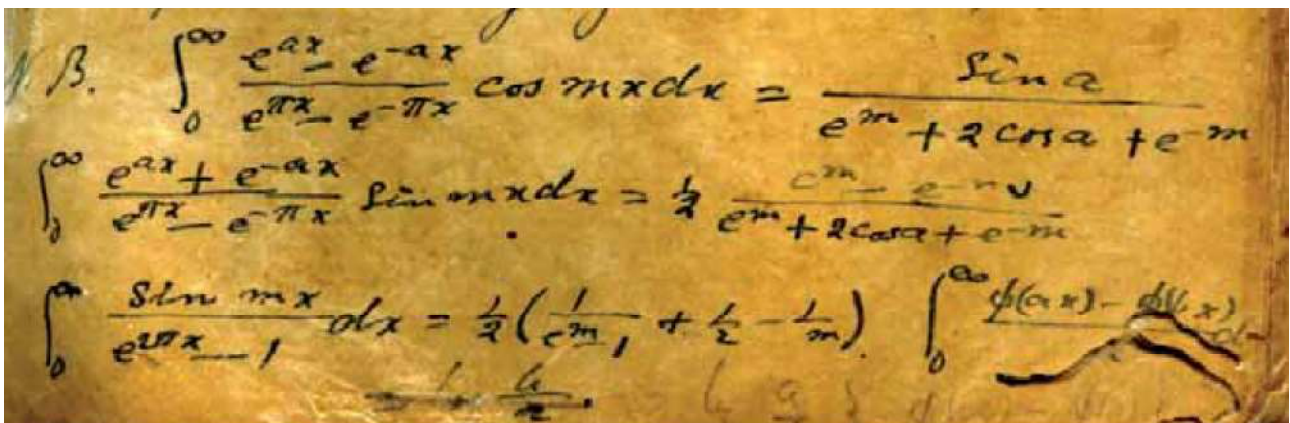 N.B. ∫₀^∞ (e^{ax} − e^{−ax})/(e^{πx} − e^{−πx}) cos mx dx = Sin a/(e^m + 2 cos a + e^{−m})
∫₀^∞ (e^{ax} + e^{−ax})/(e^{πx} − e^{−πx}) Sin mx dx = ½ (e^m − e^{−m})/(e^m + 2 cos a + e^{−m})
∫₀^∞ Sin mx/(e^{2πx} − 1) dx = ½ (1/(e^m − 1) + ½ − 1/m). ∫₀^∞ (φ(ax) − φ(bx))